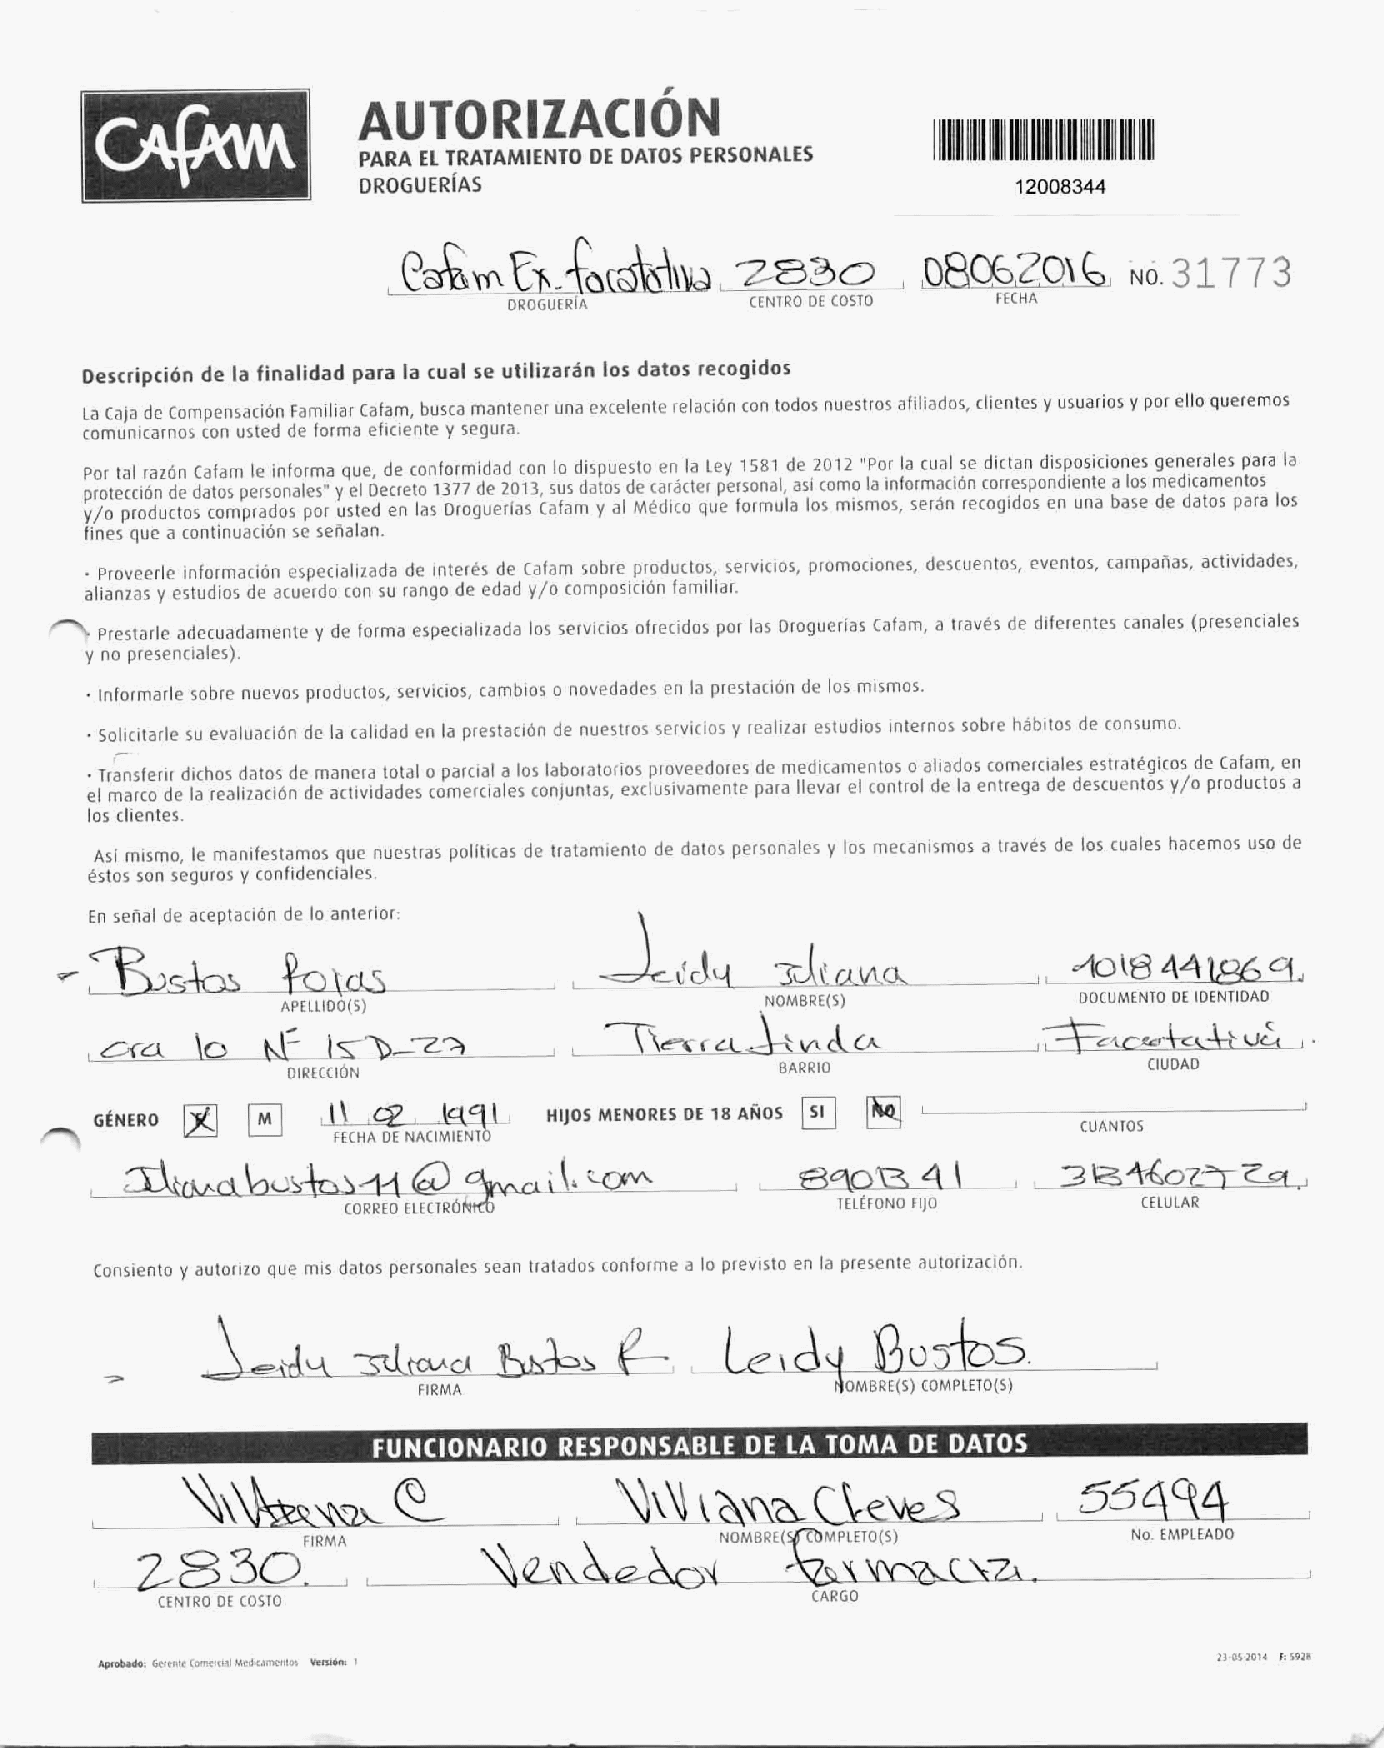 Cafam
AUTORIZACIÓN
PARA EL TRATAMIENTO DE DATOS PERSONALES
DROGUERÍAS
12008344
Cafam Ex. facatativa 2830 08062016 NO. 31773
DROGUERÍA CENTRO DE COSTO FECHA
Descripción de la finalidad para la cual se utilizarán los datos recogidos
La Caja de Compensación Familiar Cafam, busca mantener una excelente relación con todos nuestros afiliados, clientes y usuarios y por ello queremos
comunicarnos con usted de forma eficiente y segura.
Por tal razón Cafam le informa que, de conformidad con lo dispuesto en la Ley 1581 de 2012 "Por la cual se dictan disposiciones generales para la
protección de datos personales" y el Decreto 1377 de 2013, sus datos de carácter personal, así como la información correspondiente a los medicamentos
y/o productos comprados por usted en las Droguerías Cafam y al Médico que formula los mismos, serán recogidos en una base de datos para los
fines que a continuación se señalan.
· Proveerle información especializada de interés de Cafam sobre productos, servicios, promociones, descuentos, eventos, campañas, actividades,
alianzas y estudios de acuerdo con su rango de edad y/o composición familiar.
· Prestarle adecuadamente y de forma especializada los servicios ofrecidos por las Droguerías Cafam, a través de diferentes canales (presenciales
y no presenciales).
· Informarle sobre nuevos productos, servicios, cambios o novedades en la prestación de los mismos.
· Solicitarle su evaluación de la calidad en la prestación de nuestros servicios y realizar estudios internos sobre hábitos de consumo.
· Transferir dichos datos de manera total o parcial a los laboratorios proveedores de medicamentos o aliados comerciales estratégicos de Cafam, en
el marco de la realización de actividades comerciales conjuntas, exclusivamente para llevar el control de la entrega de descuentos y/o productos a
los clientes.
Así mismo, le manifestamos que nuestras políticas de tratamiento de datos personales y los mecanismos a través de los cuales hacemos uso de
éstos son seguros y confidenciales.
En señal de aceptación de lo anterior:
Bustos Rojas Leidy Iliana 1018441869
APELLIDO(S) NOMBRE(S) DOCUMENTO DE IDENTIDAD
cra 10 N° 15D-27 Tierra linda Facatativá
DIRECCIÓN BARRIO CIUDAD
GÉNERO X M 11 02 1991 HIJOS MENORES DE 18 AÑOS SI NO
FECHA DE NACIMIENTO CUANTOS
Ilianabustos11@gmail.com 8901341 3134602729
CORREO ELECTRÓNICO TELÉFONO FIJO CELULAR
Consiento y autorizo que mis datos personales sean tratados conforme a lo previsto en la presente autorización.
Leidy Iliana Bustos R. Leidy Bustos
FIRMA NOMBRE(S) COMPLETO(S)
FUNCIONARIO RESPONSABLE DE LA TOMA DE DATOS
C Viviana Cleves 55494
FIRMA NOMBRE(S) COMPLETO(S) No. EMPLEADO
2830. Vendedor farmacia.
CENTRO DE COSTO CARGO
Aprobado: Gerente Comercial Medicamentos Versión: 1 23-05-2014 F: 5928